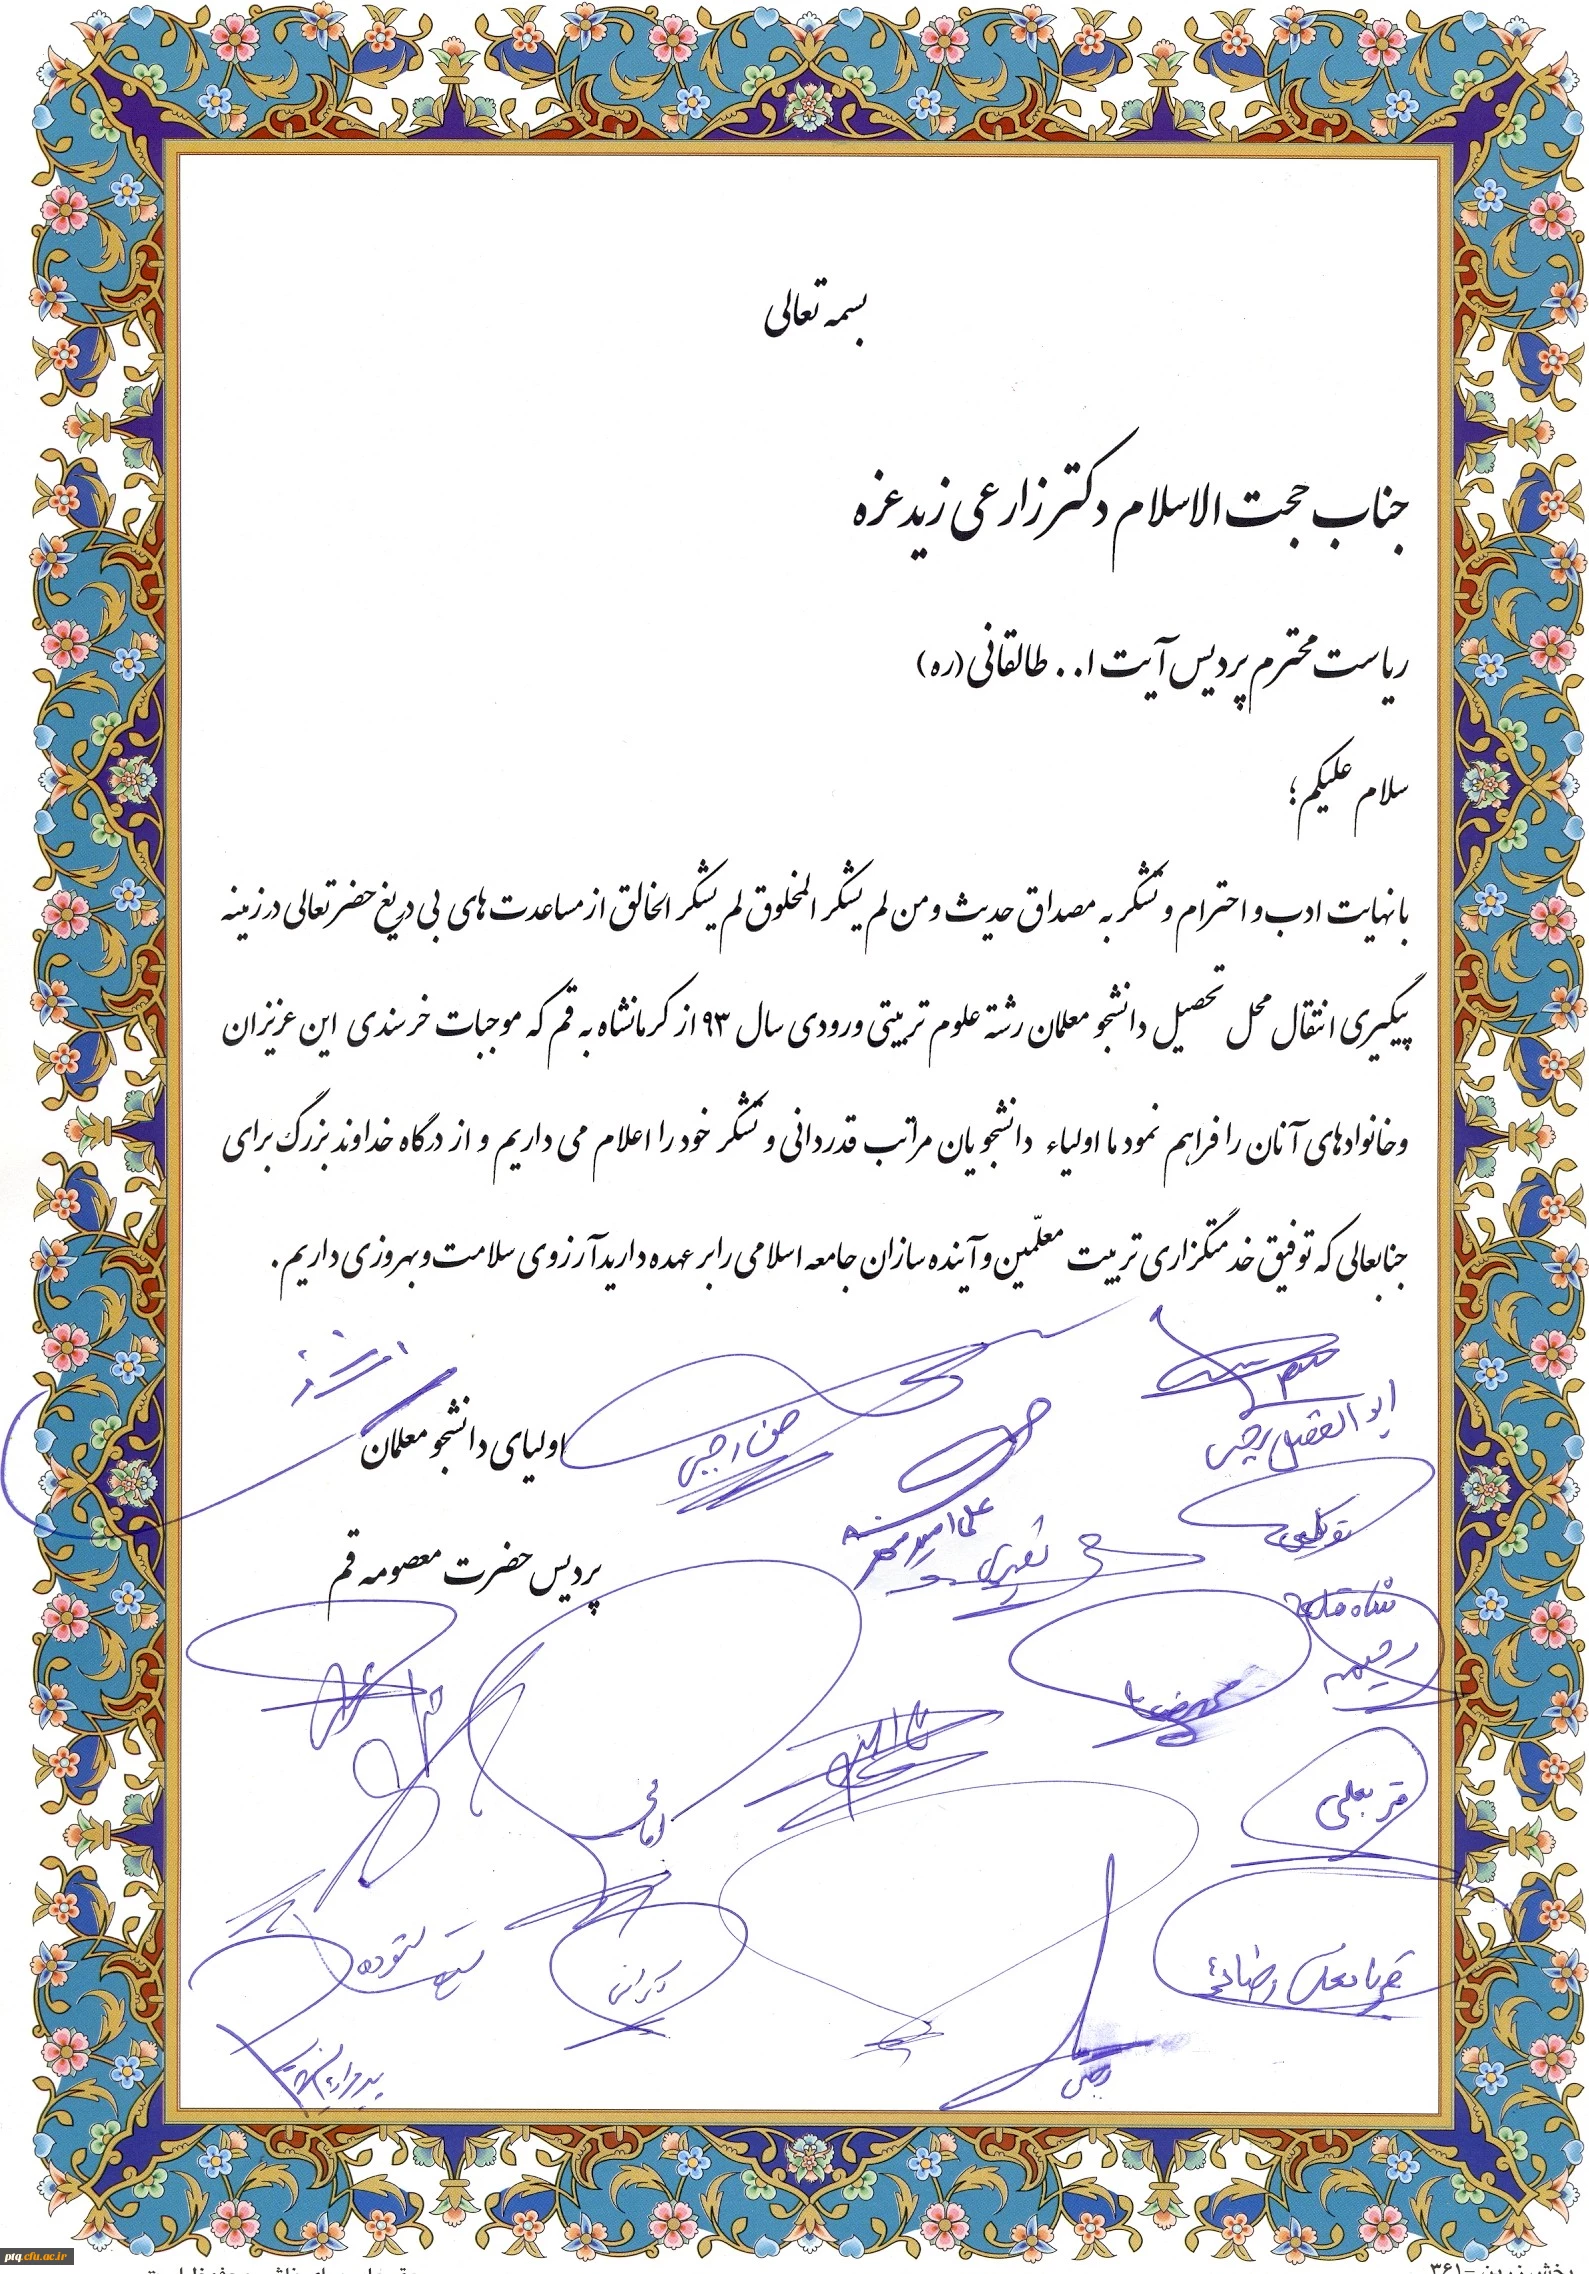 بسمه تعالی
جناب حجت الاسلام دکتر زارعی زید عزه
ریاست محترم پردیس آیت ا.. طالقانی (ره)
سلام علیکم؛
با نهایت ادب و احترام و تشکر به مصداق حدیث و من لم یشکر المخلوق لم یشکر الخالق از مساعدت های بی دریغ حضرتعالی در زمینه
پیگیری انتقال محل تحصیل دانشجو معلمان رشته علوم تربیتی ورودی سال ۹۳ از کرمانشاه به قم که موجبات خرسندی این عزیزان
و خانوادهای آنان را فراهم نمود ما اولیاء دانشجویان مراتب قدردانی و تشکر خود را اعلام می داریم و از درگاه خداوند بزرگ برای
جنابعالی که توفیق خدمتگزاری تربیت معلّمین و آینده سازان جامعه اسلامی را بر عهده دارید آرزوی سلامت و بهروزی داریم.
اولیای دانشجو معلمان
پردیس حضرت معصومه قم
ابوالفضل رجبی
صفر رجبی
توکلی
نصیری
رحیمی
قربعلی
قربانعلی رضائی
ستوده
رجبی
ptq.cfu.ac.ir